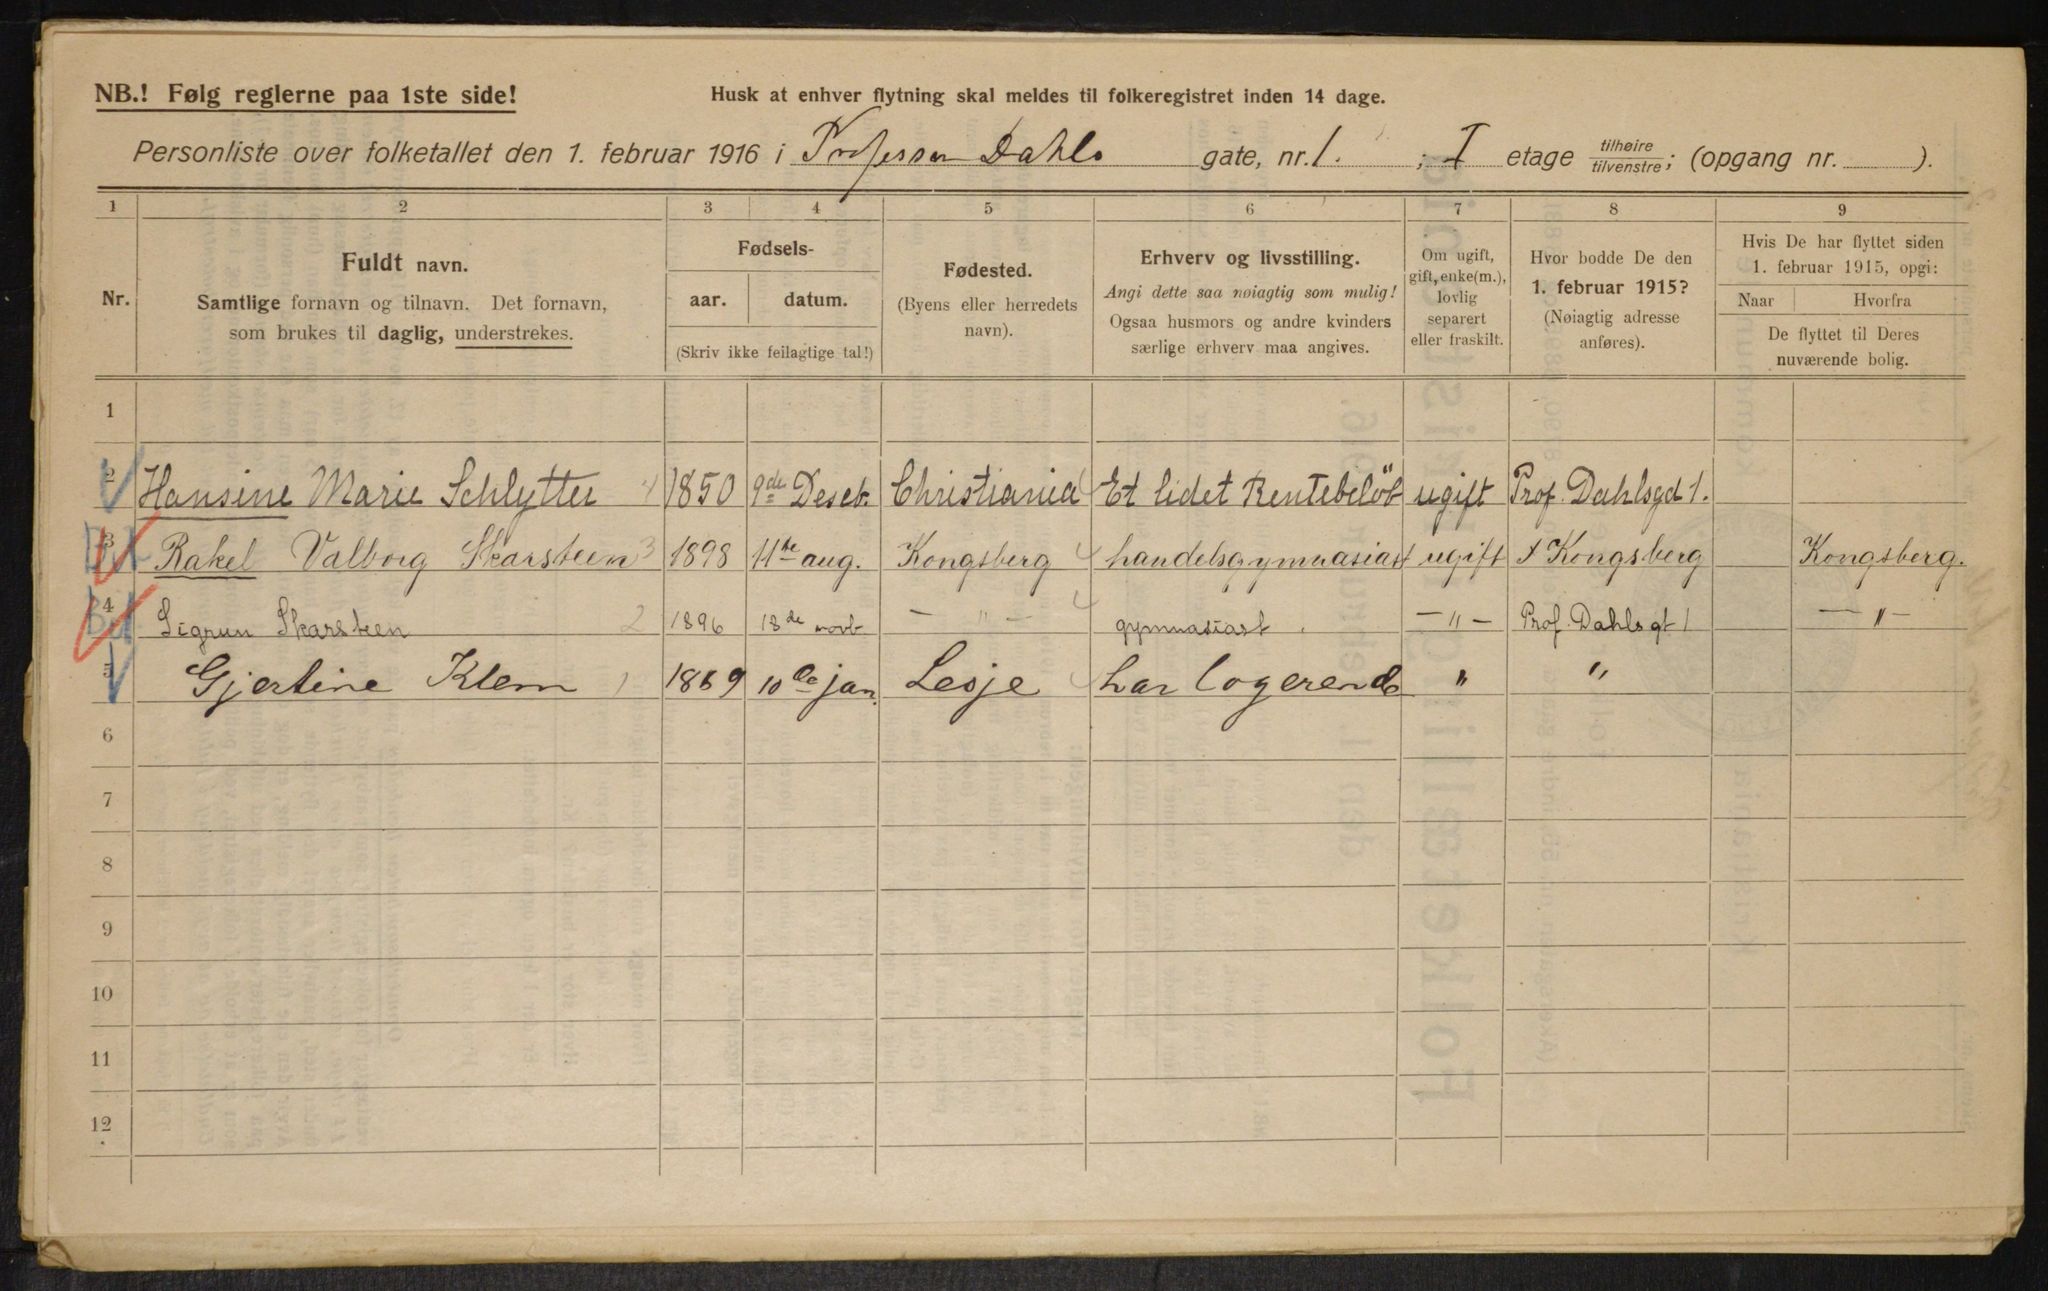 NB.! Følg reglerne paa 1ste side!
Husk at enhver flytning skal meldes til folkeregistret inden 14 dage.
Personliste over folketallet den 1. februar 1916 i Professor Dahls gate, nr. 1. ; I etage tilhøire tilvenstre; (opgang nr. ).
1 2 3 4 5 6 7 8 9
Nr.
Fuldt navn.
Samtlige fornavn og tilnavn. Det fornavn,
som brukes til daglig, understrekes.
Fødsels-
aar. datum.
(Skriv ikke feilagtige tal!)
Fødested.
(Byens eller herredets
navn).
Erhverv og livsstilling.
Angi dette saa nøiagtig som mulig!
Ogsaa husmors og andre kvinders
særlige erhverv maa angives.
Om ugift,
gift, enke(m.),
lovlig
separert
eller fraskilt.
Hvor bodde De den
1. februar 1915?
(Nøiagtig adresse
anføres).
Hvis De har flyttet siden
1. februar 1915, opgi:
Naar Hvorfra
De flyttet til Deres
nuværende bolig.
1
2 Hansine Marie Schlytter 4 1850 9de Desebr. Christiania Et lidet Rentebeløb ugift Prof. Dahlsgd 1.
3 Rakel Valborg Skarsteen 3 1898 11te aug. Kongsberg 4 handelsgymnasiast ugift Kongsberg Kongsberg.
4 Sigrun Skarsteen 2 1896 13de novb — " — 4 gymnasiast — " — Prof. Dahlsgt 1 — " —
5 Gjertine Klem 1 1869 10de jan. Lesje 4 har logerende " "
6
7
8
9
10
11
12